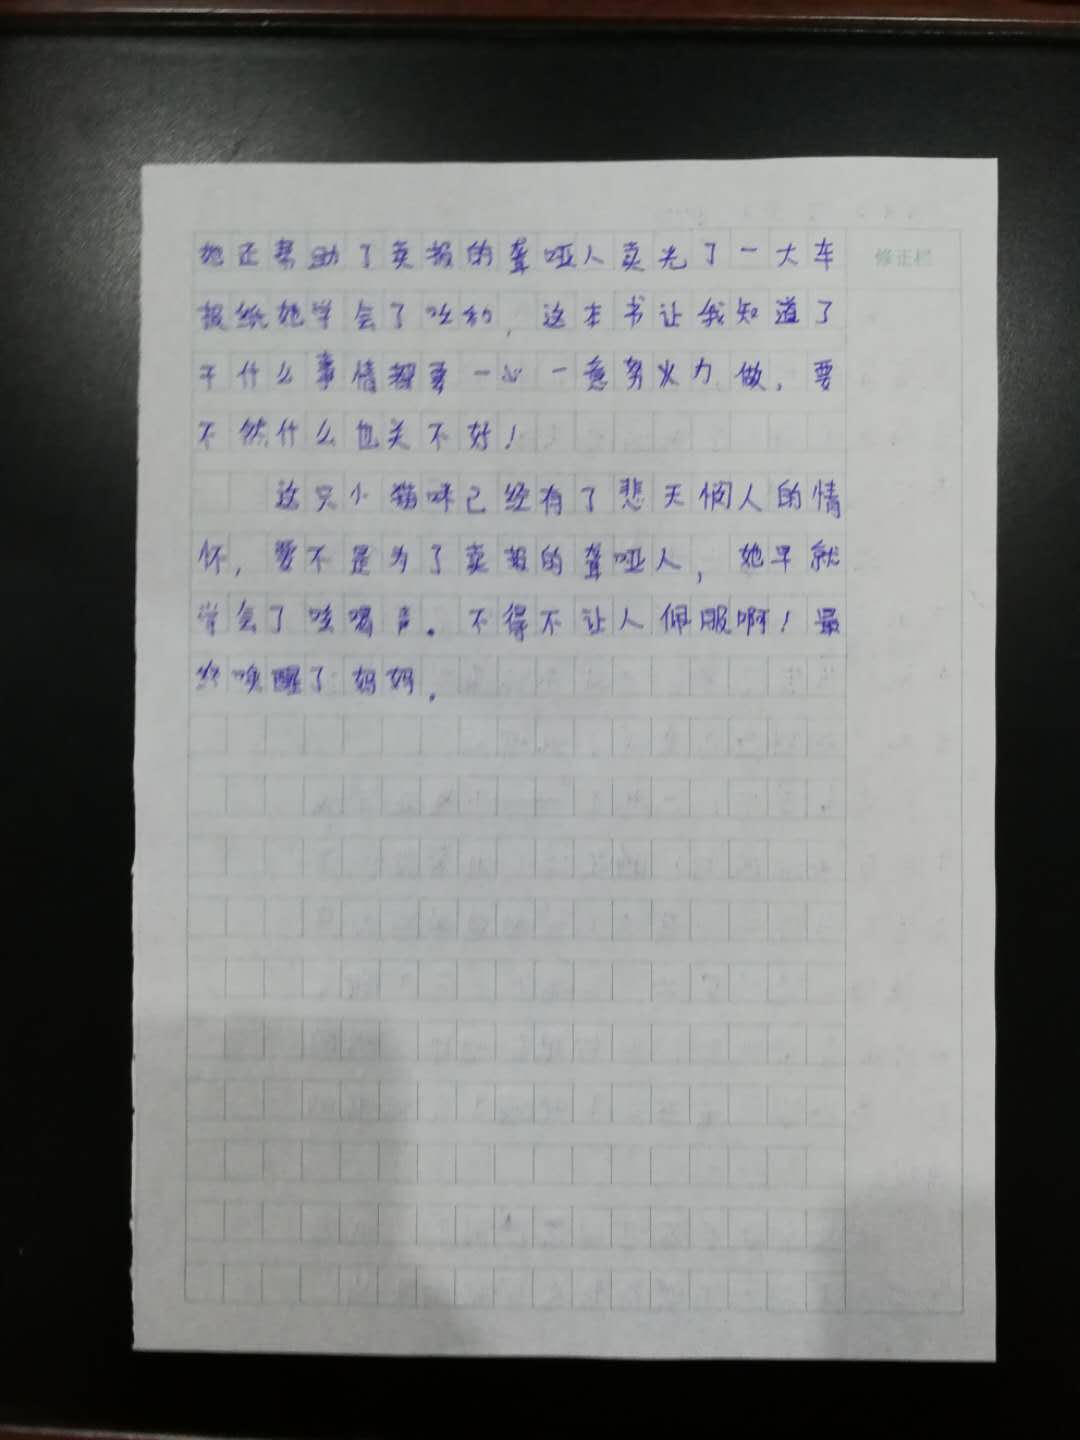 她还帮助了卖报的聋哑人卖光了一大车 修正栏
报纸她学会了吆喝，这本书让我知道了
干什么事情都要一心一意努力做，要
不然什么也关不好！
这只小猫咪已经有了悲天悯人的情
怀，要不是为了卖报的聋哑人，她早就
学会了咳喝声。不得不让人佩服啊！最
终唤醒了妈妈。